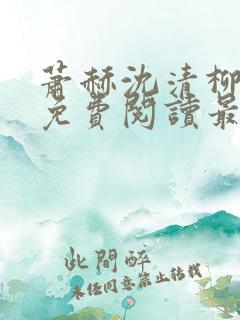 蕭赫沈清柳
免費閱讀最
此間醉
未经同意禁止转载